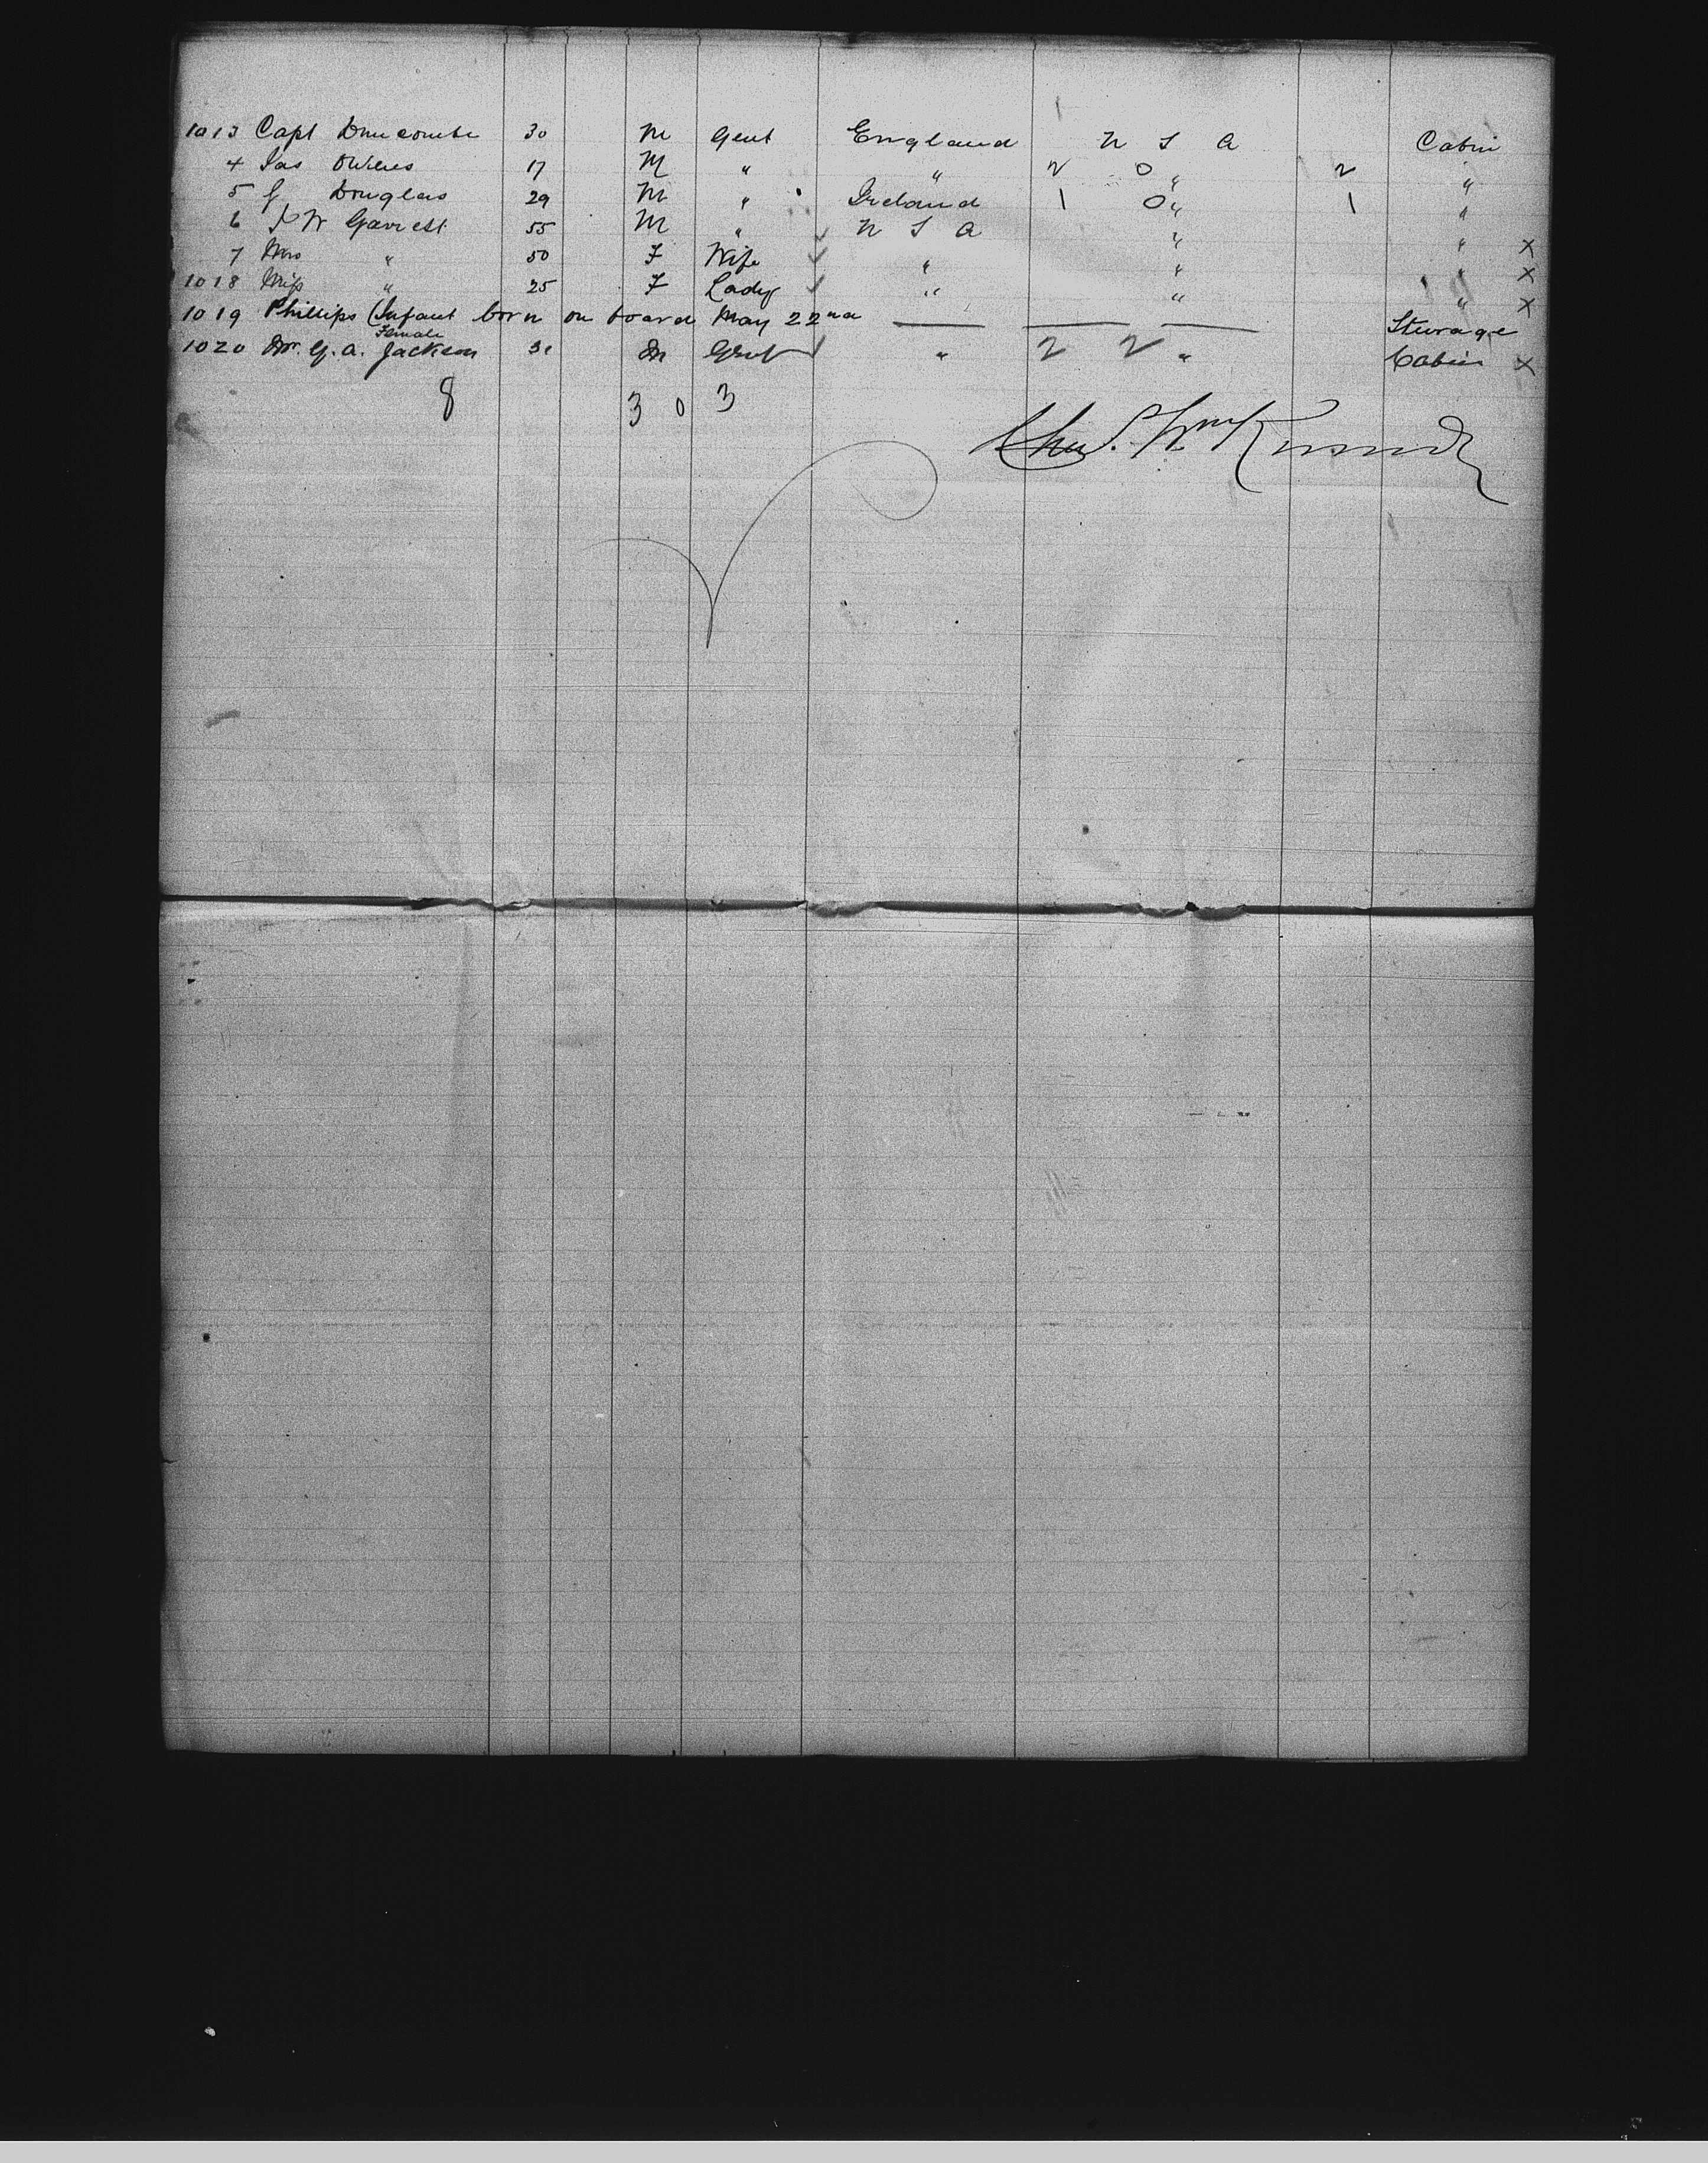 1013 Capt Duncombe 30 M Gent England U S A Cabin
4 Jas Owens 17 M " " 2 0 " 2 "
5 G Douglas 29 M " Ireland 1 0 " 1 "
6 J W Garrett 55 M " U S A " " X
7 Mrs " 50 F Wife " " " X
1018 Miss " 25 F Lady " " " X
1019 Phillips (Infant born on board May 22nd Steerage
Female
1020 Dr. G. A. Jackson 31 M Gent " 2 2 " Cabin X
8 3 0 3